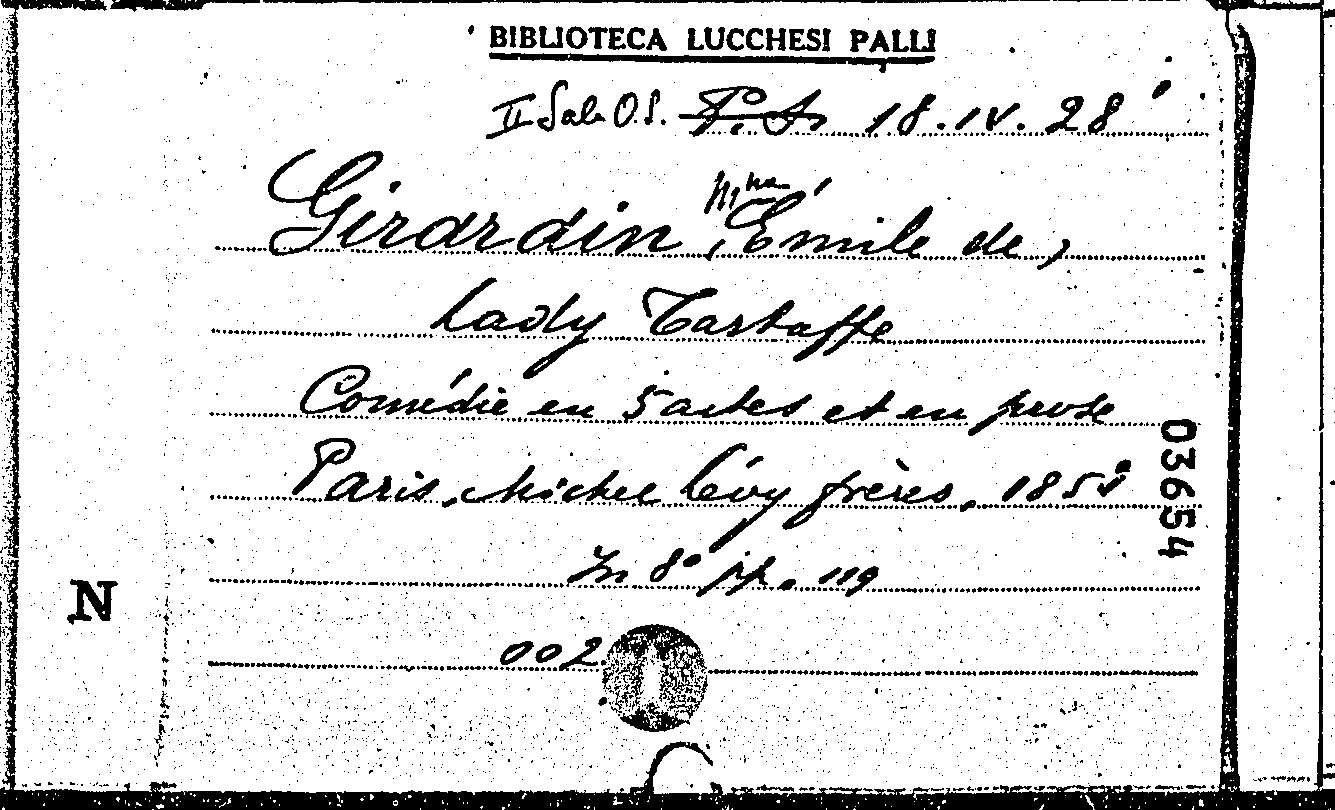 BIBLIOTECA LUCCHESI PALLI
II Sala O.S. 18.IV.28
Mme
Girardin, Émile de,
Lady Tartuffe
Comédie en 5 actes et en prose
Paris, Michel Lévy frères,
In 8° pp. 119
002
N
03654